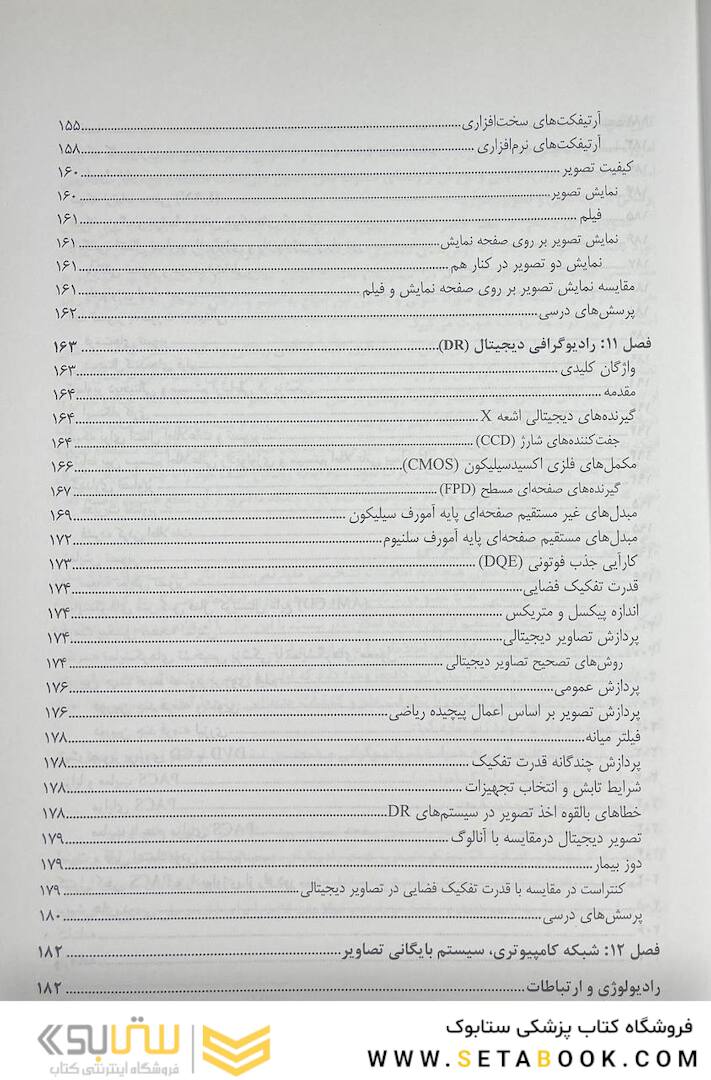 آرتیفکت‌های سخت‌افزاری ۱۵۵
آرتیفکت‌های نرم‌افزاری ۱۵۸
کیفیت تصویر ۱۶۰
نمایش تصویر ۱۶۰
فیلم ۱۶۱
نمایش تصویر بر روی صفحه نمایش ۱۶۱
نمایش دو تصویر در کنار هم ۱۶۱
مقایسه نمایش تصویر بر روی صفحه نمایش و فیلم ۱۶۱
پرسش‌های درسی ۱۶۲
فصل ۱۱: رادیوگرافی دیجیتال (DR) ۱۶۳
واژگان کلیدی ۱۶۳
مقدمه ۱۶۴
گیرنده‌های دیجیتالی اشعه X ۱۶۴
جفت‌کننده‌های شارژ (CCD) ۱۶۴
مکمل‌های فلزی اکسیدسیلیکون (CMOS) ۱۶۶
گیرنده‌های صفحه‌ای مسطح (FPD) ۱۶۷
مبدل‌های غیر مستقیم صفحه‌ای پایه آمورف سیلیکون ۱۶۹
مبدل‌های مستقیم صفحه‌ای پایه آمورف سلنیوم ۱۷۲
کارآیی جذب فوتونی (DQE) ۱۷۳
قدرت تفکیک فضایی ۱۷۴
اندازه پیکسل و متریکس ۱۷۴
پردازش تصاویر دیجیتالی ۱۷۴
روش‌های تصحیح تصاویر دیجیتالی ۱۷۴
پردازش عمومی ۱۷۶
پردازش تصویر بر اساس اعمال پیچیده ریاضی ۱۷۶
فیلتر میانه ۱۷۸
پردازش چندگانه قدرت تفکیک ۱۷۸
شرایط تابش و انتخاب تجهیزات ۱۷۸
خطاهای بالقوه اخذ تصویر در سیستم‌های DR ۱۷۸
تصویر دیجیتال درمقایسه با آنالوگ ۱۷۹
دوز بیمار ۱۷۹
کنتراست در مقایسه با قدرت تفکیک فضایی در تصاویر دیجیتالی ۱۷۹
پرسش‌های درسی ۱۸۰
فصل ۱۲: شبکه کامپیوتری، سیستم بایگانی تصاویر ۱۸۲
رادیولوژی و ارتباطات ۱۸۲
فروشگاه کتاب پزشکی ستابوک
WWW.SETABOOK.COM
ستابوک
فروشگاه اینترنتی کتاب